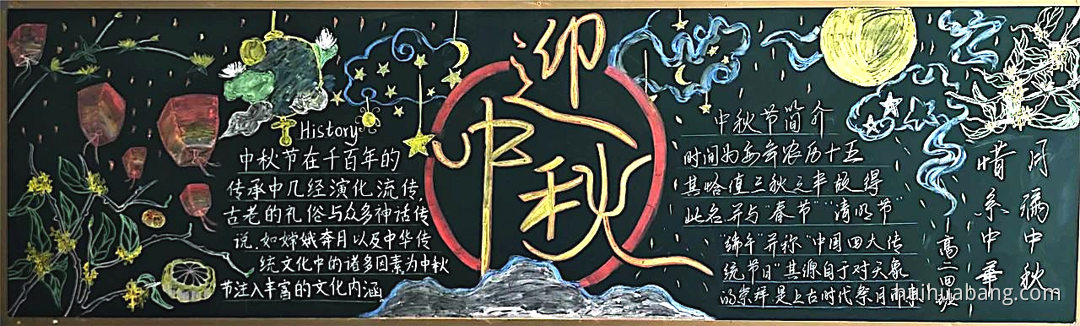 迎
中秋
History
中秋节在千百年的
传承中几经演化流传,
古老的礼俗与众多神话传
说,如嫦娥奔月以及中华传
统文化中的诸多因素为中秋
节注入丰富的文化内涵
中秋节简介
时间为每年农历十五
其恰值三秋之半故得
此名并与"春节""清明节"
"端午"并称"中国四大传
统节日"其源自于对天象
的崇拜是上古时代祭月
月满中秋
情系中華
高一四班
huihuabang.com